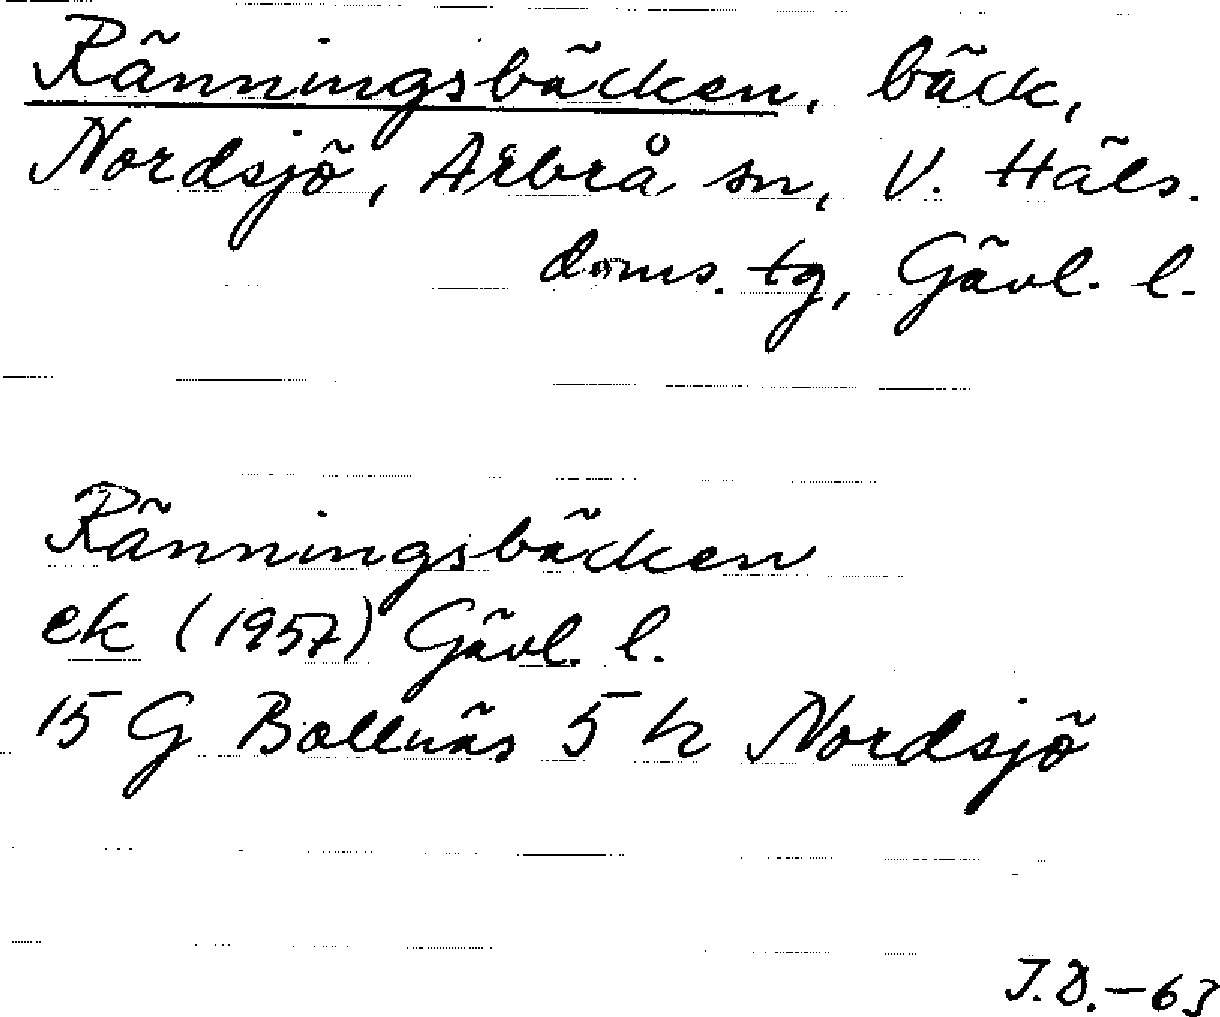 Ränningsbäcken, bäck,
Nordsjö, Arbrå sn, V. Häls.
doms. tg, Gävl. l.
Ränningsbäcken
ek (1957) Gävl. l.
15 G Bollnäs 5 h Nordsjö
J.D.-63